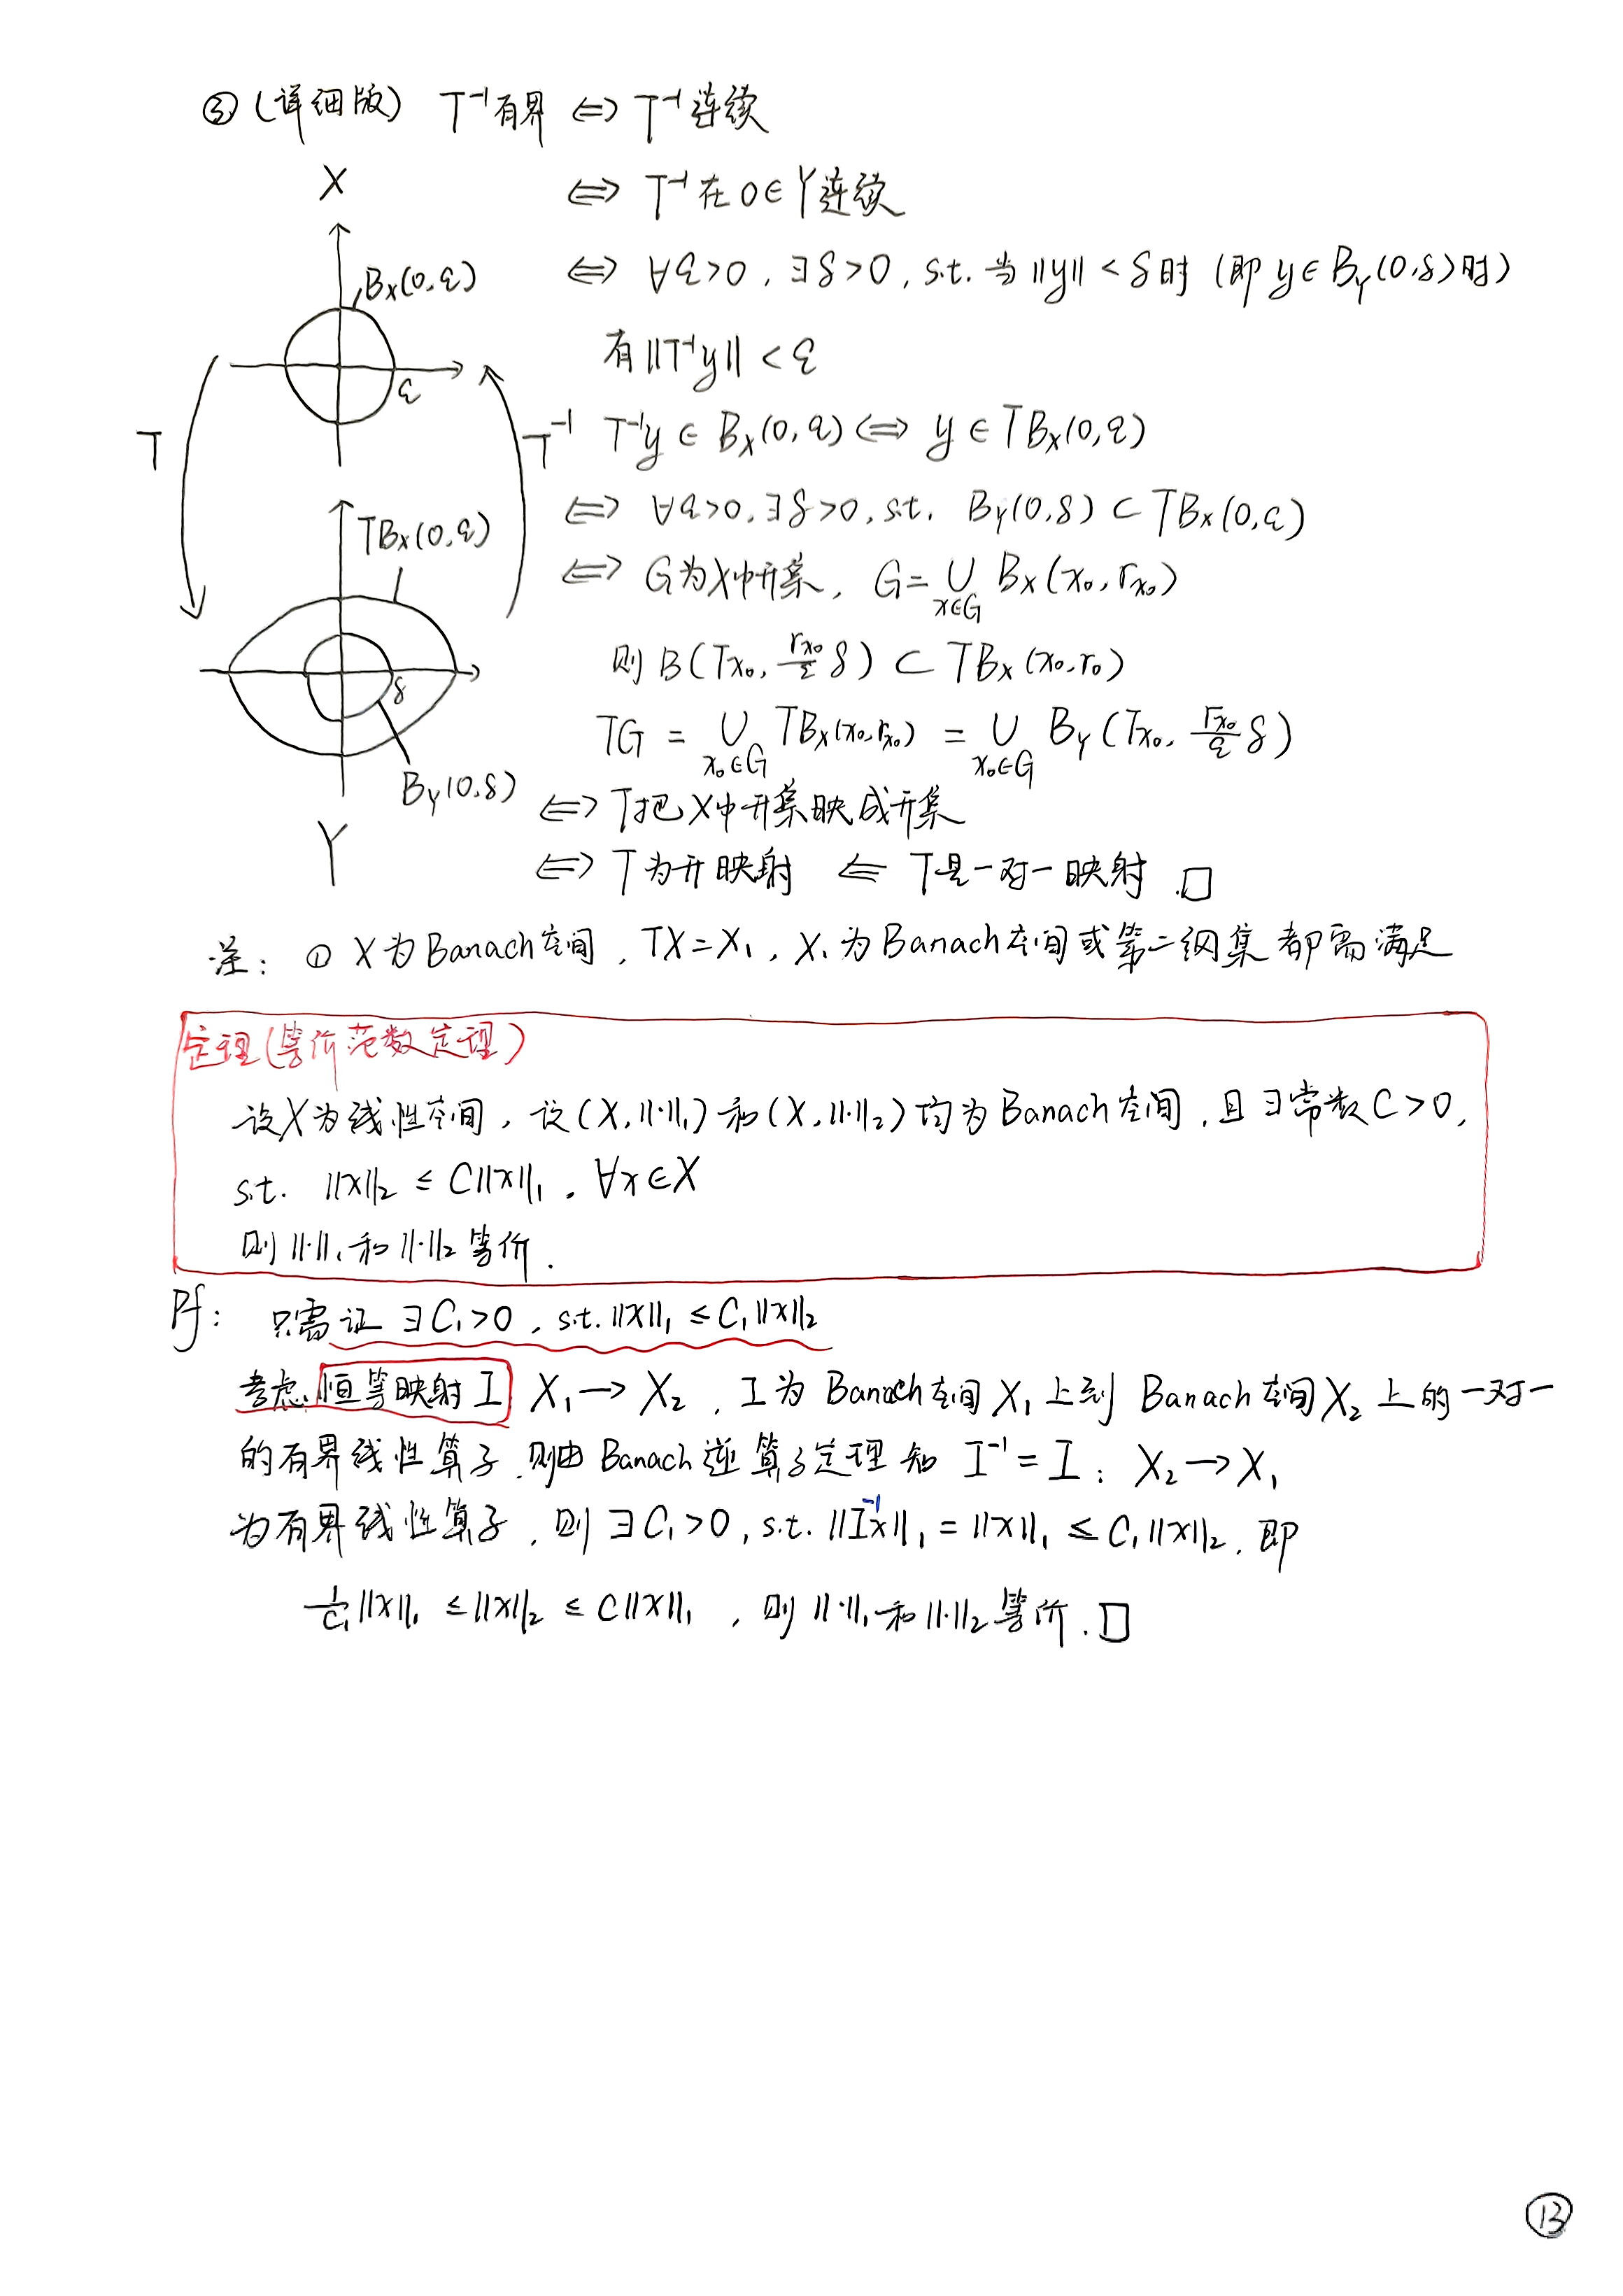 ③(详细版) T⁻¹有界 ⇔ T⁻¹连续
X
⇔ T⁻¹在0∈Y连续
Bx(0,ε)
⇔ ∀ε>0, ∃δ>0, s.t. 当‖y‖<δ时 (即y∈B_Y(0,δ)时)
有‖T⁻¹y‖<ε
ε
T
T⁻¹
T⁻¹y∈B_X(0,ε) ⇔ y∈TB_X(0,ε)
TB_X(0,ε)
⇔ ∀ε>0, ∃δ>0, s.t. B_Y(0,δ)⊂TB_X(0,ε)
⇔ G为X中开集, G=∪_{x∈G} B_X(x₀,r_{x₀})
则B(Tx₀, r_{x₀}/ε δ)⊂TB_X(x₀,r₀)
δ
TG = ∪_{x₀∈G} TB_X(x₀,r_{x₀}) = ∪_{x₀∈G} B_Y(Tx₀, r_{x₀}/ε δ)
B_Y(0,δ)
⇔ T把X中开集映成开集
Y
⇔ T为开映射 ⇐ T是一对一映射.□
注: ① X为Banach空间, TX=X₁, X₁为Banach空间或第二纲集都需满足
定理(等价范数定理)
设X为线性空间, 设(X,‖·‖₁)和(X,‖·‖₂)均为Banach空间, 且∃常数C>0,
s.t. ‖x‖₂≤C‖x‖₁, ∀x∈X
则‖·‖₁和‖·‖₂等价.
Pf: 只需证∃C₁>0, s.t.‖x‖₁≤C₁‖x‖₂
考虑恒等映射I X₁→X₂, I为Banach空间X₁上到Banach空间X₂上的一对一
的有界线性算子.则由Banach逆算子定理知 I⁻¹=I: X₂→X₁
为有界线性算子, 则∃C₁>0, s.t.‖I⁻¹x‖₁=‖x‖₁≤C₁‖x‖₂. 即
1/C₁‖x‖₁≤‖x‖₂≤C‖x‖₁, 则‖·‖₁和‖·‖₂等价.□
⑬